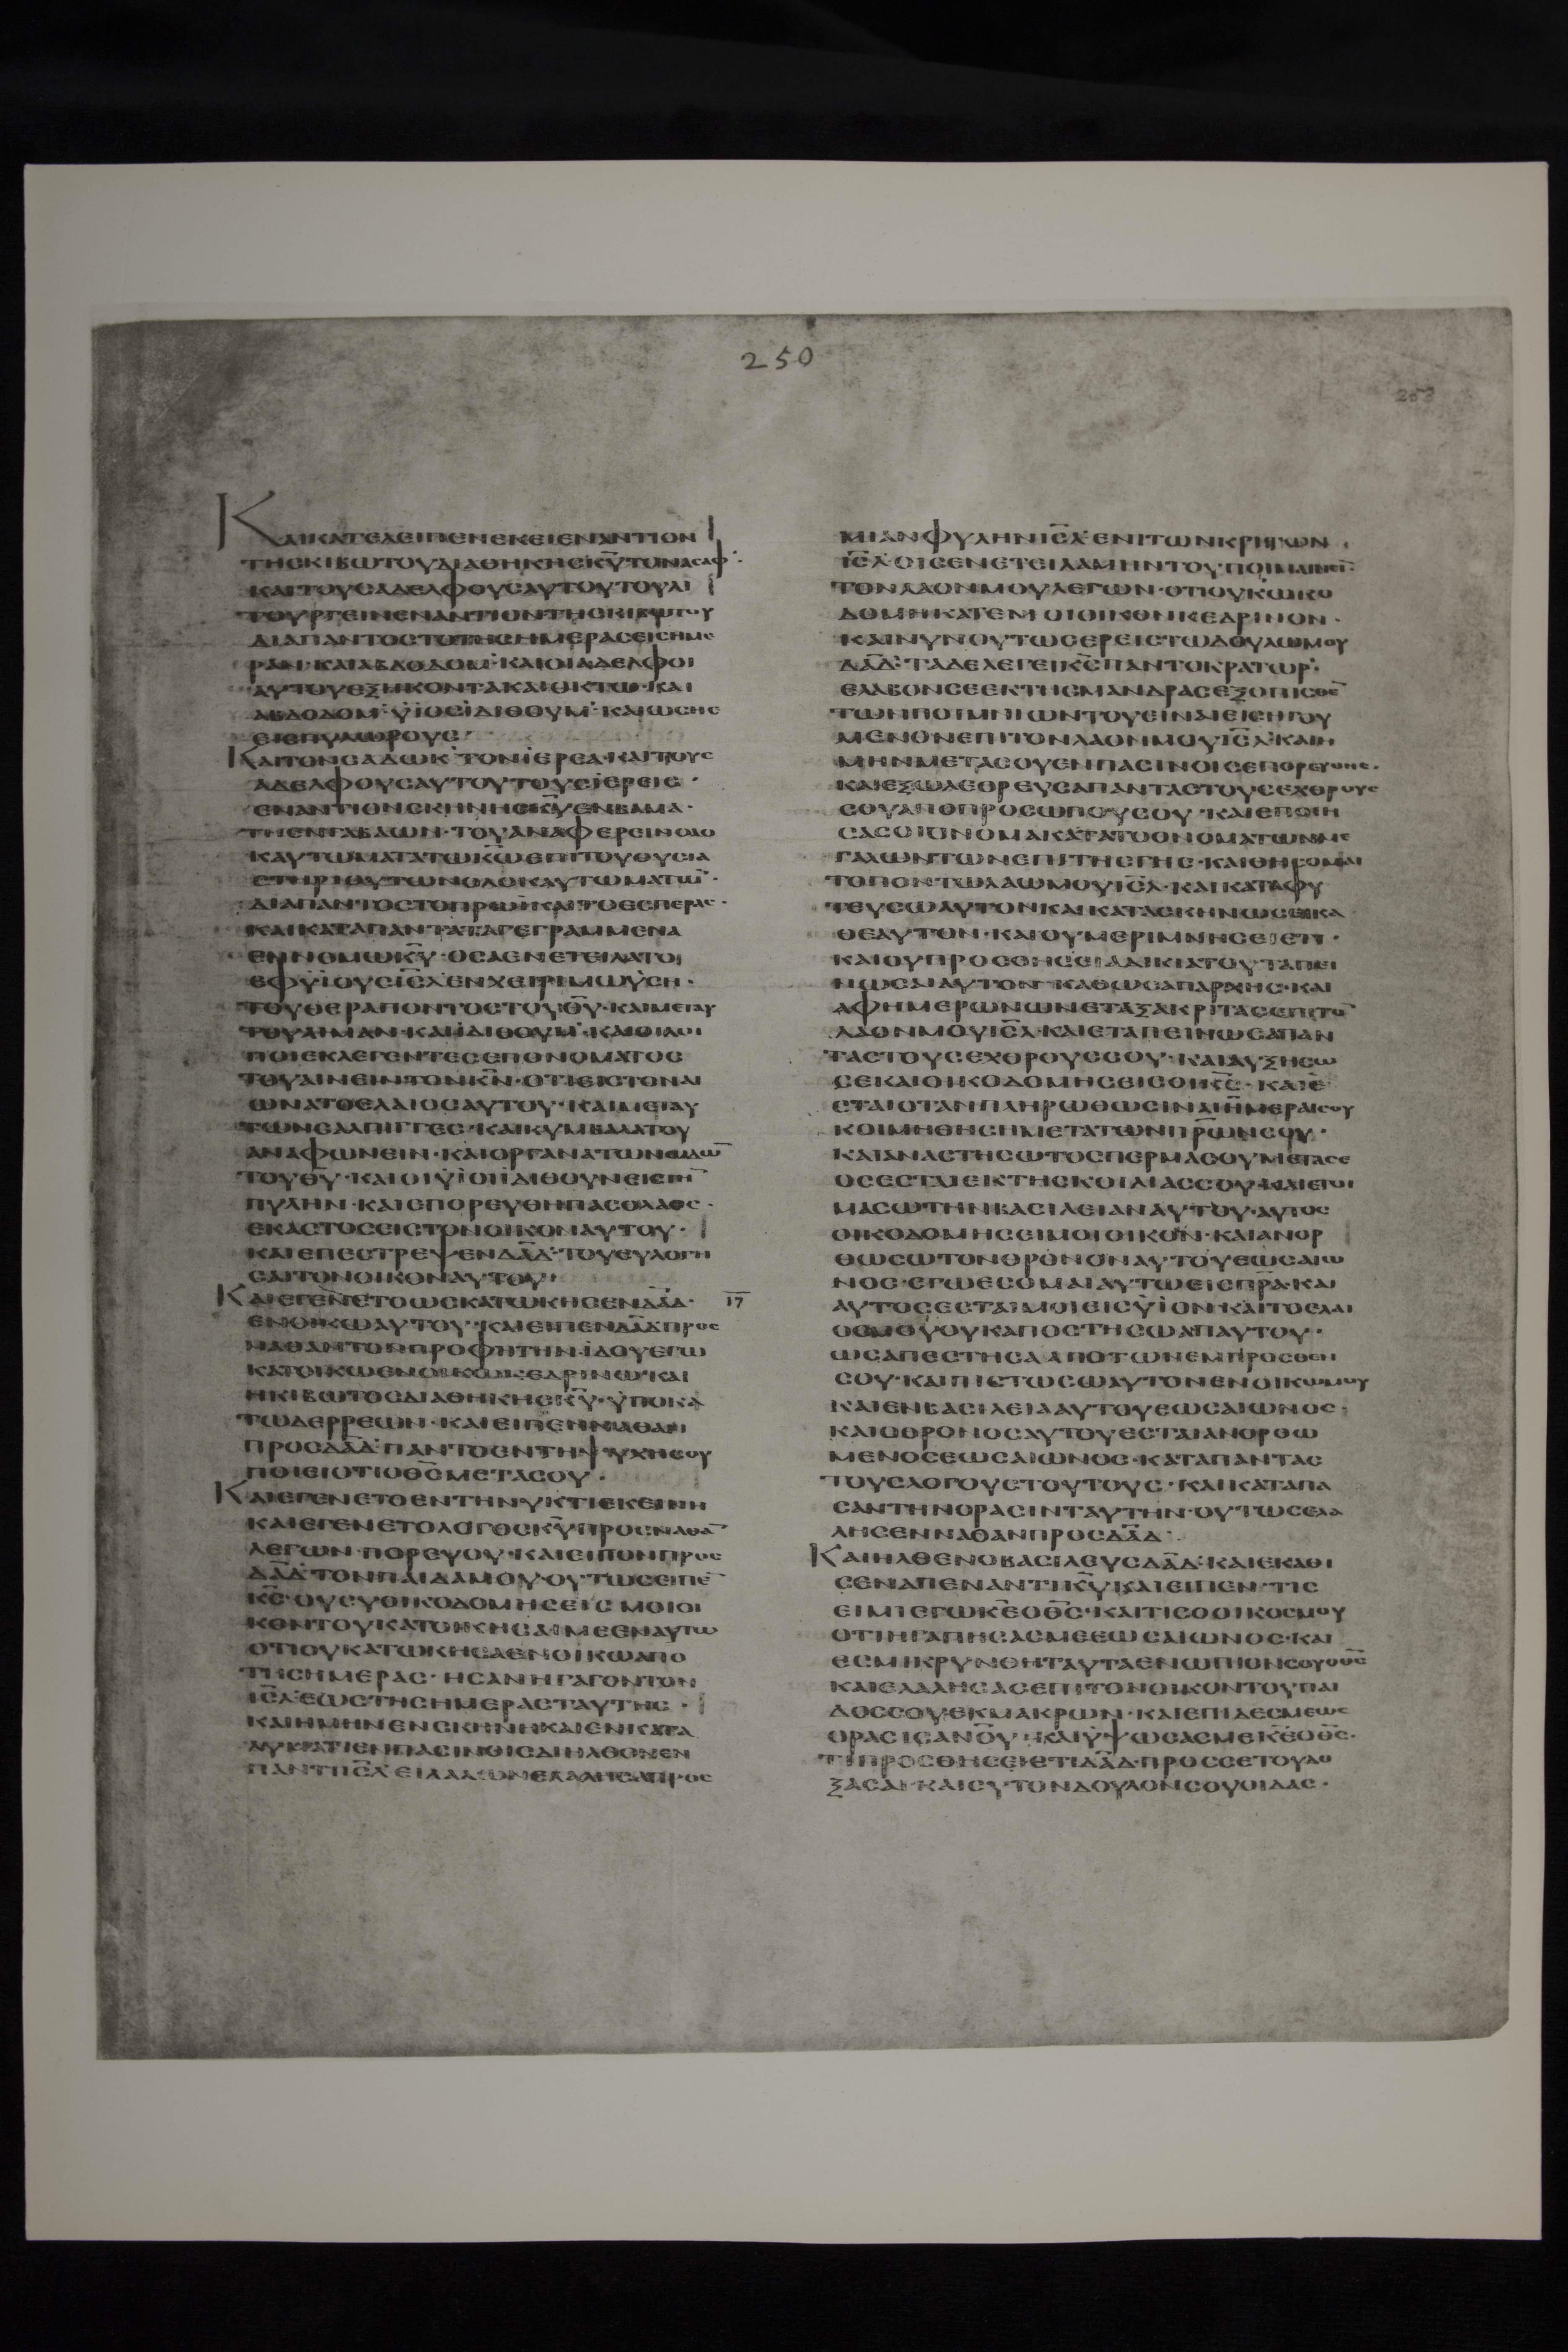 250
253
ΚΑΙΚΑΤΕΛΕΙΠΕΝΕΚΕΙΕΝΑΝΤΙΟΝ
ΤΗϹΚΙΒΩΤΟΥΔΙΑΘΗΚΗϹΚ̅Υ̅ΤΟΝΑϹΑΦ·
ΚΑΙΤΟΥϹΑΔΕΛΦΟΥϹΑΥΤΟΥΤΟΥΛΙ
ΤΟΥΡΓΕΙΝΕΝΑΝΤΙΟΝΤΗϹΚΙΒΩΤΟΥ
ΔΙΑΠΑΝΤΟϹΤΟΤΗϹΗΜΕΡΑϹΕΙϹΗΜΕ
ΡΑΝ·ΚΑΙΑΒΔΟΔΟΜ·ΚΑΙΟΙΑΔΕΛΦΟΙ
ΑΥΤΟΥΕΞΗΚΟΝΤΑΚΑΙΟΚΤΩ·ΚΑΙ
ΑΒΔΟΔΟΜ·ΫΙΟϹΪΔΙΘΟΥΜ·ΚΑΙΩϹΗϹ
ΕΙϹΠΥΛΩΡΟΥϹ·
ΚΑΙΤΟΝϹΑΔΩΚ·ΤΟΝΪΕΡΕΑ·ΚΑΙΤΟΥϹ
ΑΔΕΛΦΟΥϹΑΥΤΟΥΤΟΥϹΪΕΡΕΙϹ·
ΕΝΑΝΤΙΟΝϹΚΗΝΗϹΚ̅Υ̅ΕΝΒΑΜΑ·
ΤΗΕΝΓΑΒΑΩΝ·ΤΟΥΑΝΑΦΕΡΕΙΝΟΛΟ
ΚΑΥΤΩΜΑΤΑΤΩΚ̅Ω̅ΕΠΙΤΟΥΘΥϹΙΑ
ϹΤΗΡΙΟΥΤΩΝΟΛΟΚΑΥΤΩΜΑΤΩ̅·
ΔΙΑΠΑΝΤΟϹΤΟΠΡΩΪΚΑΙΤΟΕϹΠΕΡΑϹ·
ΚΑΙΚΑΤΑΠΑΝΤΑΤΑΓΕΓΡΑΜΜΕΝΑ
ΕΝΝΟΜΩΚ̅Υ̅·ΟϹΑΕΝΕΤΕΙΛΑΤΟ
ΕΦΫΙΟΥϹΙ̅Ϲ̅Λ̅ΕΝΧΕΙΡΙΜΩΫϹΗ·
ΤΟΥΘΕΡΑΠΟΝΤΟϹΤΟΥΘ̅Υ̅·ΚΑΙΜΕΤΑΥ
ΤΟΥΑΙΜΑΝ·ΚΑΙΪΔΙΘΟΥΜ·ΚΑΙΟΙΛΟΙ
ΠΟΙΕΚΛΕΓΕΝΤΕϹΕΠΟΝΟΜΑΤΟϹ
ΤΟΥΑΙΝΕΙΝΤΟΝΚ̅Ν̅·ΟΤΙΕΙϹΤΟΝΑΙ
ΩΝΑΤΟΕΛΑΙΟϹΑΥΤΟΥ·ΚΑΙΜΕΤΑΥ
ΤΩΝϹΑΛΠΙΓΓΕϹ·ΚΑΙΚΥΜΒΑΛΑΤΟΥ
ΑΝΑΦΩΝΕΙΝ·ΚΑΙΟΡΓΑΝΑΤΩΝΩΔΩ̅
ΤΟΥΘ̅Υ̅·ΚΑΙΟΙΫΪΟΙΪΔΙΘΟΥΝΕΙϹΤΗ̅
ΠΥΛΗΝ·ΚΑΙΕΠΟΡΕΥΘΗΠΑϹΟΛΑΟϹ·
ΕΚΑϹΤΟϹΕΙϹΤΟΝΟΙΚΟΝΑΥΤΟΥ·
ΚΑΙΕΠΕϹΤΡΕΨΕΝΔ̅Α̅Δ̅·ΤΟΥΕΥΛΟΓΗ
ϹΑΙΤΟΝΟΙΚΟΝΑΥΤΟΥ·
ΚΑΙΕΓΕΝΕΤΟΩϹΚΑΤΩΚΗϹΕΝΔ̅Α̅Δ̅· 17
ΕΝΟΙΚΩΑΥΤΟΥ·ΚΑΙΕΙΠΕΝΔ̅Α̅Δ̅ΠΡΟϹ
ΝΑΘΑΝΤΟΝΠΡΟΦΗΤΗΝ·ΪΔΟΥΕΓΩ
ΚΑΤΟΙΚΩΕΝΟΙΚΩΚΕΔΡΙΝΩ·ΚΑΙ
ΗΚΙΒΩΤΟϹΔΙΑΘΗΚΗϹΚ̅Υ̅·ΫΠΟΚΑ
ΤΩΔΕΡΡΕΩΝ·ΚΑΙΕΙΠΕΝΝΑΘΑΝ
ΠΡΟϹΔ̅Α̅Δ̅·ΠΑΝΤΟΕΝΤΗΨΥΧΗϹΟΥ
ΠΟΙΕΙΟΤΙΟΘ̅Ϲ̅ΜΕΤΑϹΟΥ·
ΚΑΙΕΓΕΝΕΤΟΕΝΤΗΝΥΚΤΙΕΚΕΙΝΗ
ΚΑΙΕΓΕΝΕΤΟΛΟΓΟϹΚ̅Υ̅ΠΡΟϹΝΑΘΑ̅
ΛΕΓΩΝ·ΠΟΡΕΥΟΥ·ΚΑΙΕΙΠΟΝΠΡΟϹ
Δ̅Α̅Δ̅·ΤΟΝΠΑΙΔΑΜΟΥ·ΟΥΤΩϹΕΙΠΕ̅
Κ̅Ϲ̅·ΟΥϹΥΟΙΚΟΔΟΜΗϹΕΙϹΜΟΙΟΙ
ΚΟΝΤΟΥΚΑΤΟΙΚΗϹΑΙΜΕΕΝΑΥΤΩ
ΟΤΙΟΥΚΑΤΩΚΗϹΑΕΝΟΙΚΩΑΠΟ
ΤΗϹΗΜΕΡΑϹ·ΗϹΑΝΗΓΑΓΟΝΤΟΝ
Ι̅Ϲ̅Λ̅·ΕΩϹΤΗϹΗΜΕΡΑϹΤΑΥΤΗϹ·
ΚΑΙΗΜΗΝΕΝϹΚΗΝΗΚΑΙΕΝΚΑΤΑ
ΛΥΜΑΤΙΕΝΠΑϹΙΝΟΙϹΔΙΗΛΘΟΝΕΝ
ΠΑΝΤΙΙ̅Ϲ̅Λ̅·ΕΙΛΑΛΩΝΕΛΑΛΗϹΑΠΡΟϹ
ΜΙΑΝΦΥΛΗΝΙ̅Ϲ̅Λ̅·ΕΝΙΤΩΝΚΡΙΤΩΝ
Ι̅Ϲ̅Λ̅·ΟΙϹΕΝΕΤΕΙΛΑΜΗΝΤΟΥΠΟΙΜΑΙΝΕΙ̅·
ΤΟΝΛΑΟΝΜΟΥΛΕΓΩΝ·ΟΤΙΟΥΚΩΚΟ
ΔΟΜΗΚΑΤΕΜΟΙΟΙΚΟΝΚΕΔΡΙΝΟΝ·
ΚΑΙΝΥΝΟΥΤΩϹΕΡΕΙϹΤΩΔΟΥΛΩΜΟΥ
Δ̅Α̅Δ̅·ΤΑΔΕΛΕΓΕΙΚ̅Ϲ̅ΠΑΝΤΟΚΡΑΤΩΡ·
ΕΛΑΒΟΝϹΕΕΚΤΗϹΜΑΝΔΡΑϹΕΞΟΠΙϹΘΕ̅
ΤΩΝΠΟΙΜΝΙΩΝΤΟΥΕΙΝΑΙΕΙϹΗΓΟΥ
ΜΕΝΟΝΕΠΙΤΟΝΛΑΟΝΜΟΥΙ̅Ϲ̅Λ̅·ΚΑΙΗ
ΜΗΝΜΕΤΑϹΟΥΕΝΠΑϹΙΝΟΙϹΕΠΟΡΕΥΘΗϹ·
ΚΑΙΕΞΩΛΕΘΡΕΥϹΑΠΑΝΤΑϹΤΟΥϹΕΧΘΡΟΥϹ
ϹΟΥΑΠΟΠΡΟϹΩΠΟΥϹΟΥ·ΚΑΙΕΠΟΙΗ
ϹΑϹΟΙΟΝΟΜΑΚΑΤΑΤΟΟΝΟΜΑΤΩΝΜΕ
ΓΑΛΩΝΤΩΝΕΠΙΤΗϹΓΗϹ·ΚΑΙΘΗϹΟΜΑΙ
ΤΟΠΟΝΤΩΛΑΩΜΟΥΙ̅Ϲ̅Λ̅·ΚΑΙΚΑΤΑΦΥ
ΤΕΥϹΩΑΥΤΟΝΚΑΙΚΑΤΑϹΚΗΝΩϹΕΙΚΑ
ΘΕΑΥΤΟΝ·ΚΑΙΟΥΜΕΡΙΜΝΗϹΕΙΕΤΙ·
ΚΑΙΟΥΠΡΟϹΘΗϹΕΙΑΔΙΚΙΑΤΟΥΤΑΠΕΙ
ΝΩϹΑΙΑΥΤΟΝ·ΚΑΘΩϹΑΠΑΡΧΗϹ·ΚΑΙ
ΑΦΗΜΕΡΩΝΩΝΕΤΑΞΑΚΡΙΤΑϹΕΠΙΤΟ̅
ΛΑΟΝΜΟΥΙ̅Ϲ̅Λ̅·ΚΑΙΕΤΑΠΕΙΝΩϹΑΠΑΝ
ΤΑϹΤΟΥϹΕΧΘΡΟΥϹϹΟΥ·ΚΑΙΑΥΞΗϹΩ
ϹΕΚΑΙΟΙΚΟΔΟΜΗϹΕΙϹΟΙΚ̅Ϲ̅·ΚΑΙΕ
ϹΤΑΙΟΤΑΝΠΛΗΡΩΘΩϹΙΝΑΙΗΜΕΡΑΙϹΟΥ
ΚΟΙΜΗΘΗϹΗΜΕΤΑΤΩΝΠ̅Ρ̅Ω̅Ν̅ϹΟΥ·
ΚΑΙΑΝΑϹΤΗϹΩΤΟϹΠΕΡΜΑϹΟΥΜΕΤΑϹΕ
ΟϹΕϹΤΑΙΕΚΤΗϹΚΟΙΛΙΑϹϹΟΥ·ΚΑΙΕΤΟΙ
ΜΑϹΩΤΗΝΒΑϹΙΛΕΙΑΝΑΥΤΟΥ·ΑΥΤΟϹ
ΟΙΚΟΔΟΜΗϹΕΙΜΟΙΟΙΚΟΝ·ΚΑΙΑΝΟΡ
ΘΩϹΩΤΟΝΘΡΟΝΟΝΑΥΤΟΥΕΩϹΑΙΩ
ΝΟϹ·ΕΓΩΕϹΟΜΑΙΑΥΤΩΕΙϹΠ̅Ρ̅Α̅·ΚΑΙ
ΑΥΤΟϹΕϹΤΑΙΜΟΙΕΙϹΫΙΟΝ·ΚΑΙΤΟΕΛΑΙ
ΟϹΜΟΥΟΥΚΑΠΟϹΤΗϹΩΑΠΑΥΤΟΥ·
ΩϹΑΠΕϹΤΗϹΑΑΠΟΤΩΝΕΜΠΡΟϹΘΕΝ
ϹΟΥ·ΚΑΙΠΙϹΤΩϹΩΑΥΤΟΝΕΝΟΙΚΩΜΟΥ
ΚΑΙΕΝΒΑϹΙΛΕΙΑΑΥΤΟΥΕΩϹΑΙΩΝΟϹ·
ΚΑΙΟΘΡΟΝΟϹΑΥΤΟΥΕϹΤΑΙΑΝΟΡΘΩ
ΜΕΝΟϹΕΩϹΑΙΩΝΟϹ·ΚΑΤΑΠΑΝΤΑϹ
ΤΟΥϹΛΟΓΟΥϹΤΟΥΤΟΥϹ·ΚΑΙΚΑΤΑΠΑ
ϹΑΝΤΗΝΟΡΑϹΙΝΤΑΥΤΗΝ·ΟΥΤΩϹΕΛΑ
ΛΗϹΕΝΝΑΘΑΝΠΡΟϹΔ̅Α̅Δ̅·
ΚΑΙΗΛΘΕΝΟΒΑϹΙΛΕΥϹΔ̅Α̅Δ̅·ΚΑΙΕΚΑΘΙ
ϹΕΝΑΠΕΝΑΝΤΙΚ̅Υ̅ΚΑΙΕΙΠΕΝ·ΤΙϹ
ΕΙΜΙΕΓΩΚ̅Ε̅ΟΘ̅Ϲ̅·ΚΑΙΤΙϹΟΟΙΚΟϹΜΟΥ
ΟΤΙΗΓΑΠΗϹΑϹΜΕΕΩϹΑΙΩΝΟϹ·ΚΑΙ
ΕϹΜΙΚΡΥΝΘΗΤΑΥΤΑΕΝΩΠΙΟΝϹΟΥΟΘ̅Ϲ̅
ΚΑΙΕΛΑΛΗϹΑϹΕΠΙΤΟΝΟΙΚΟΝΤΟΥΠΑΙ
ΔΟϹϹΟΥ·ΕΚΜΑΚΡΩΝ·ΚΑΙΕΠΙΔΕϹΜΕΩϹ
ΟΡΑϹΙϹΑΝ̅Ο̅Υ̅·ΚΑΙΫΨΩϹΑϹΜΕΚ̅Ε̅ΟΘ̅Ϲ̅·
ΤΙΠΡΟϹΘΗϹΕΙΕΤΙΔ̅Α̅Δ̅·ΠΡΟϹϹΕΤΟΥΔΟ
ΞΑϹΑΙ·ΚΑΙϹΥΤΟΝΔΟΥΛΟΝϹΟΥΟΙΔΑϹ·